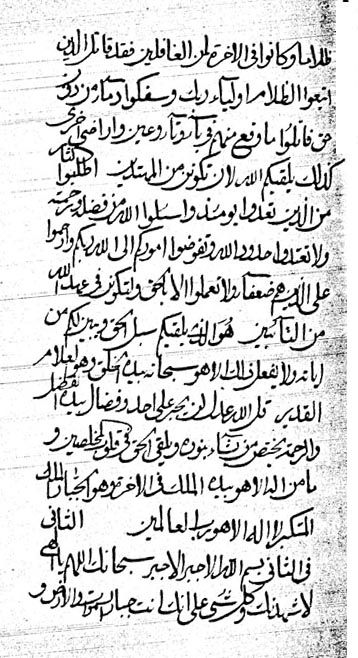 ظلاما وكانوا في الاخرة لمن الغافلين فقد قاتل الذين
اتبعوا الظلام اولياء ربك وسفكوا دماء من
حتى قاتلوا ما وقع منهم في
كذلك يلقيكم الله لان تكونن من المهتدين اطلبوا
من الذين يومئذ واسئلوا الله من فضله ورحمته
ولا تعتدوا حدود الله وتفوضوا اموركم الى الله ربكم وارحموا
على الذين هم ضعفاء ولا تعملوا الا بالحق ولتكونن في عند الله
من التائبين هو الذي يلقيكم سبل الحق ويبين لكم من
اياته ولا يفعل ذلك الا هو سبحانه بيده الخلق وهو العلام
القدير قل الله عدل لن يجبر على احد وفضال بيده الفضل
والرحمة يختص من يشاء بنوره ويلقي الحق في قلوب المخلصين و
ما من اله الا هو بيده الملك في الاخرة وهو الجبار المالك
المتكبر لا اله الا هو رب العالمين الثاني
في الثاني بسم الله الاجبر الاجبر سبحانك اللهم يا الهي
لاشهدنك وكل شئ على انك انت جبار السموات والارض و